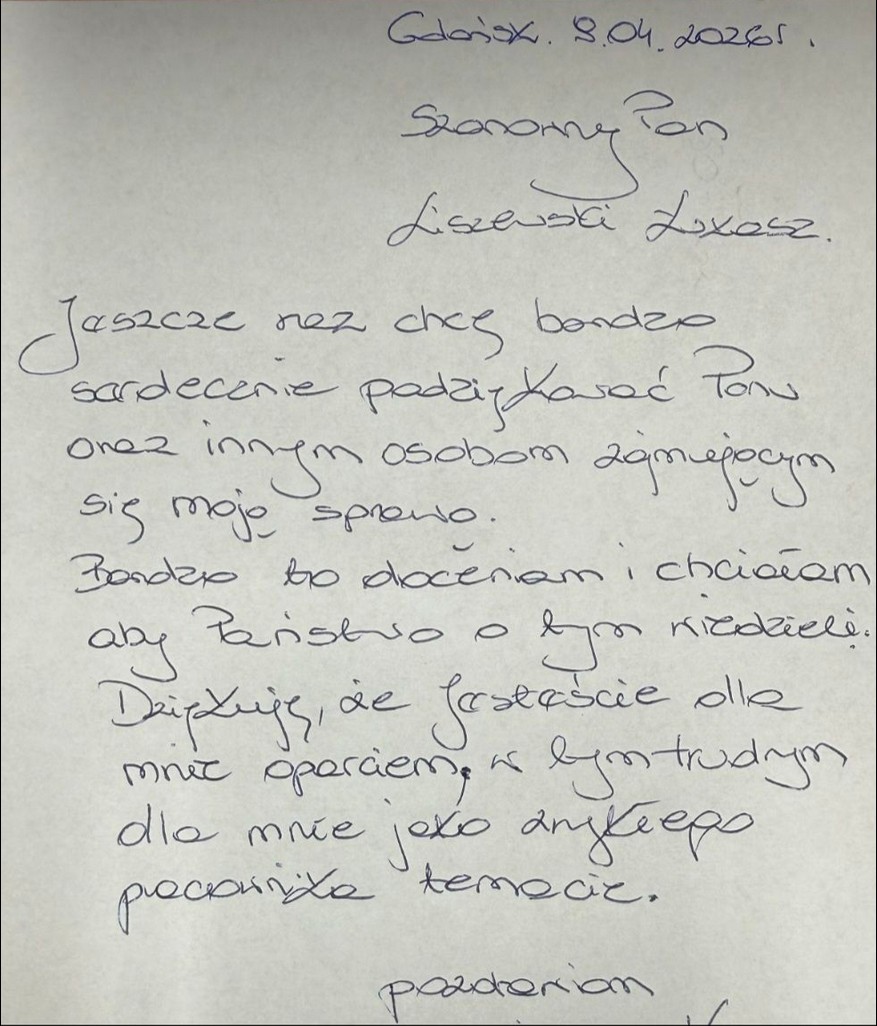 Gdańsk. 9.04.2026r.
Szanowny Pan
Liszewski Łukasz.
Jeszcze raz chcę bardzo
serdecznie podziękować Panu
oraz innym osobom zajmującym
się moją sprawą.
Bardzo to doceniam i chciałam
aby Państwo o tym wiedzieli.
Dziękuję, że jesteście dla
mnie oparciem, w tym trudnym
dla mnie jako zwykłego
pracownika temacie.
pozdrawiam